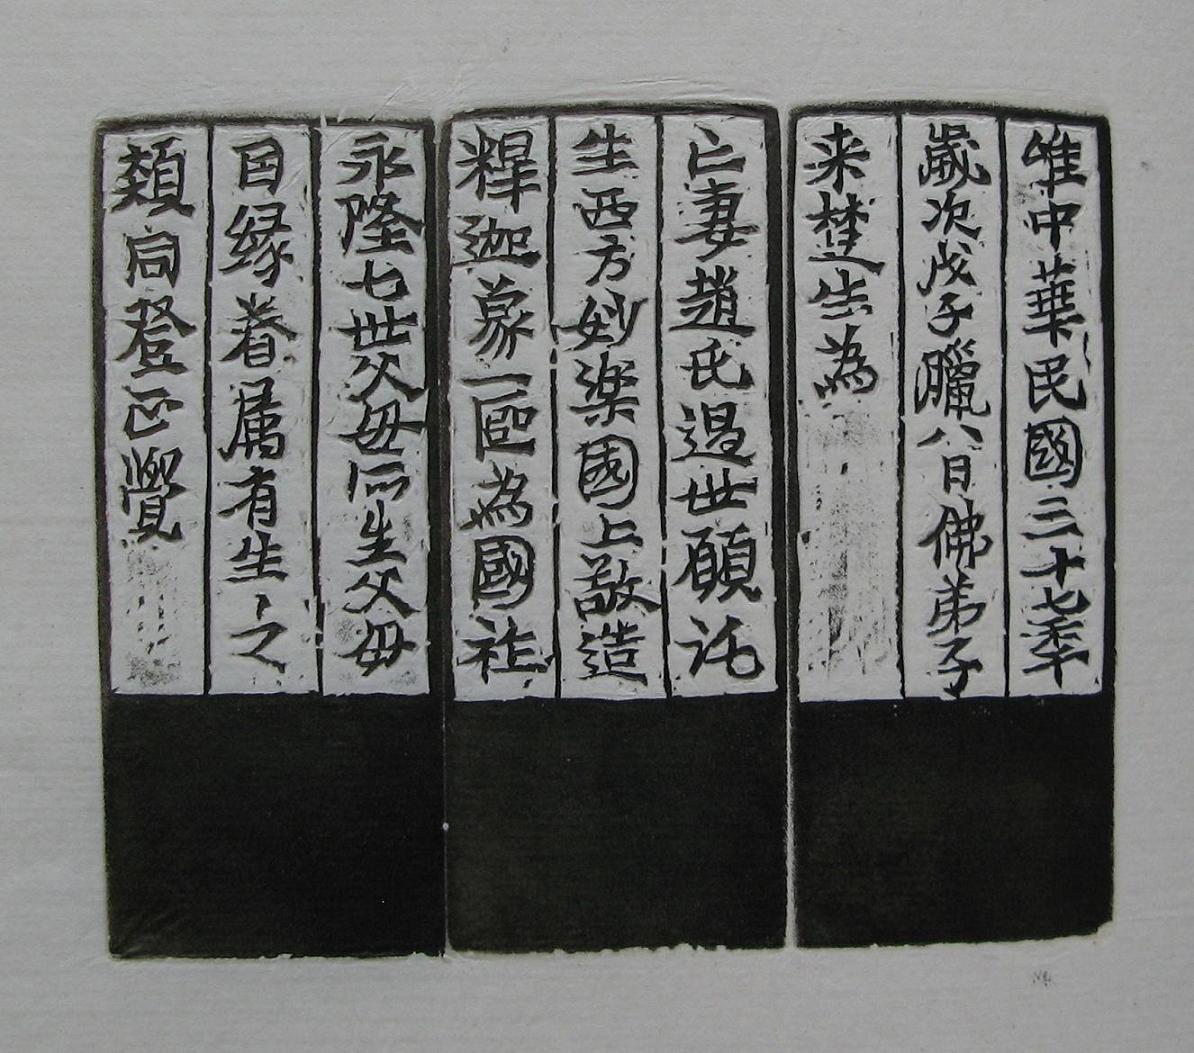 唯中華民國三十七秊
歲次戊子臘八日佛弟子
来楚生為
亡妻趙氏過世願託
生西方妙楽國上敬造
釋迦象一區為國祚
永隆七世父母所生父母
因緣眷属有生〻之
類同登正覺